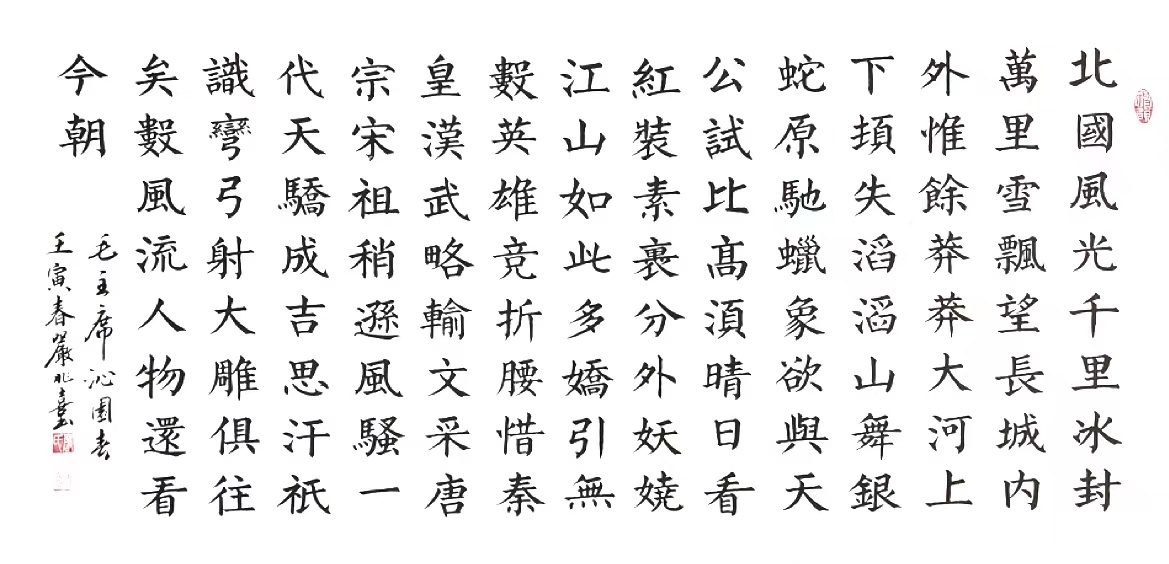 北國風光千里冰封
萬里雪飄望長城内
外惟餘莽莽大河上
下頓失滔滔山舞銀
蛇原馳蠟象欲與天
公試比髙須晴日看
紅裝素裹分外妖嬈
江山如此多嬌引無
數英雄竞折腰惜秦
皇漢武略輸文采唐
宗宋祖稍遜風騷一
代天驕成吉思汗衹
識彎弓射大雕俱往
矣數風流人物還看
今朝
毛主席沁園春
壬寅春嚴